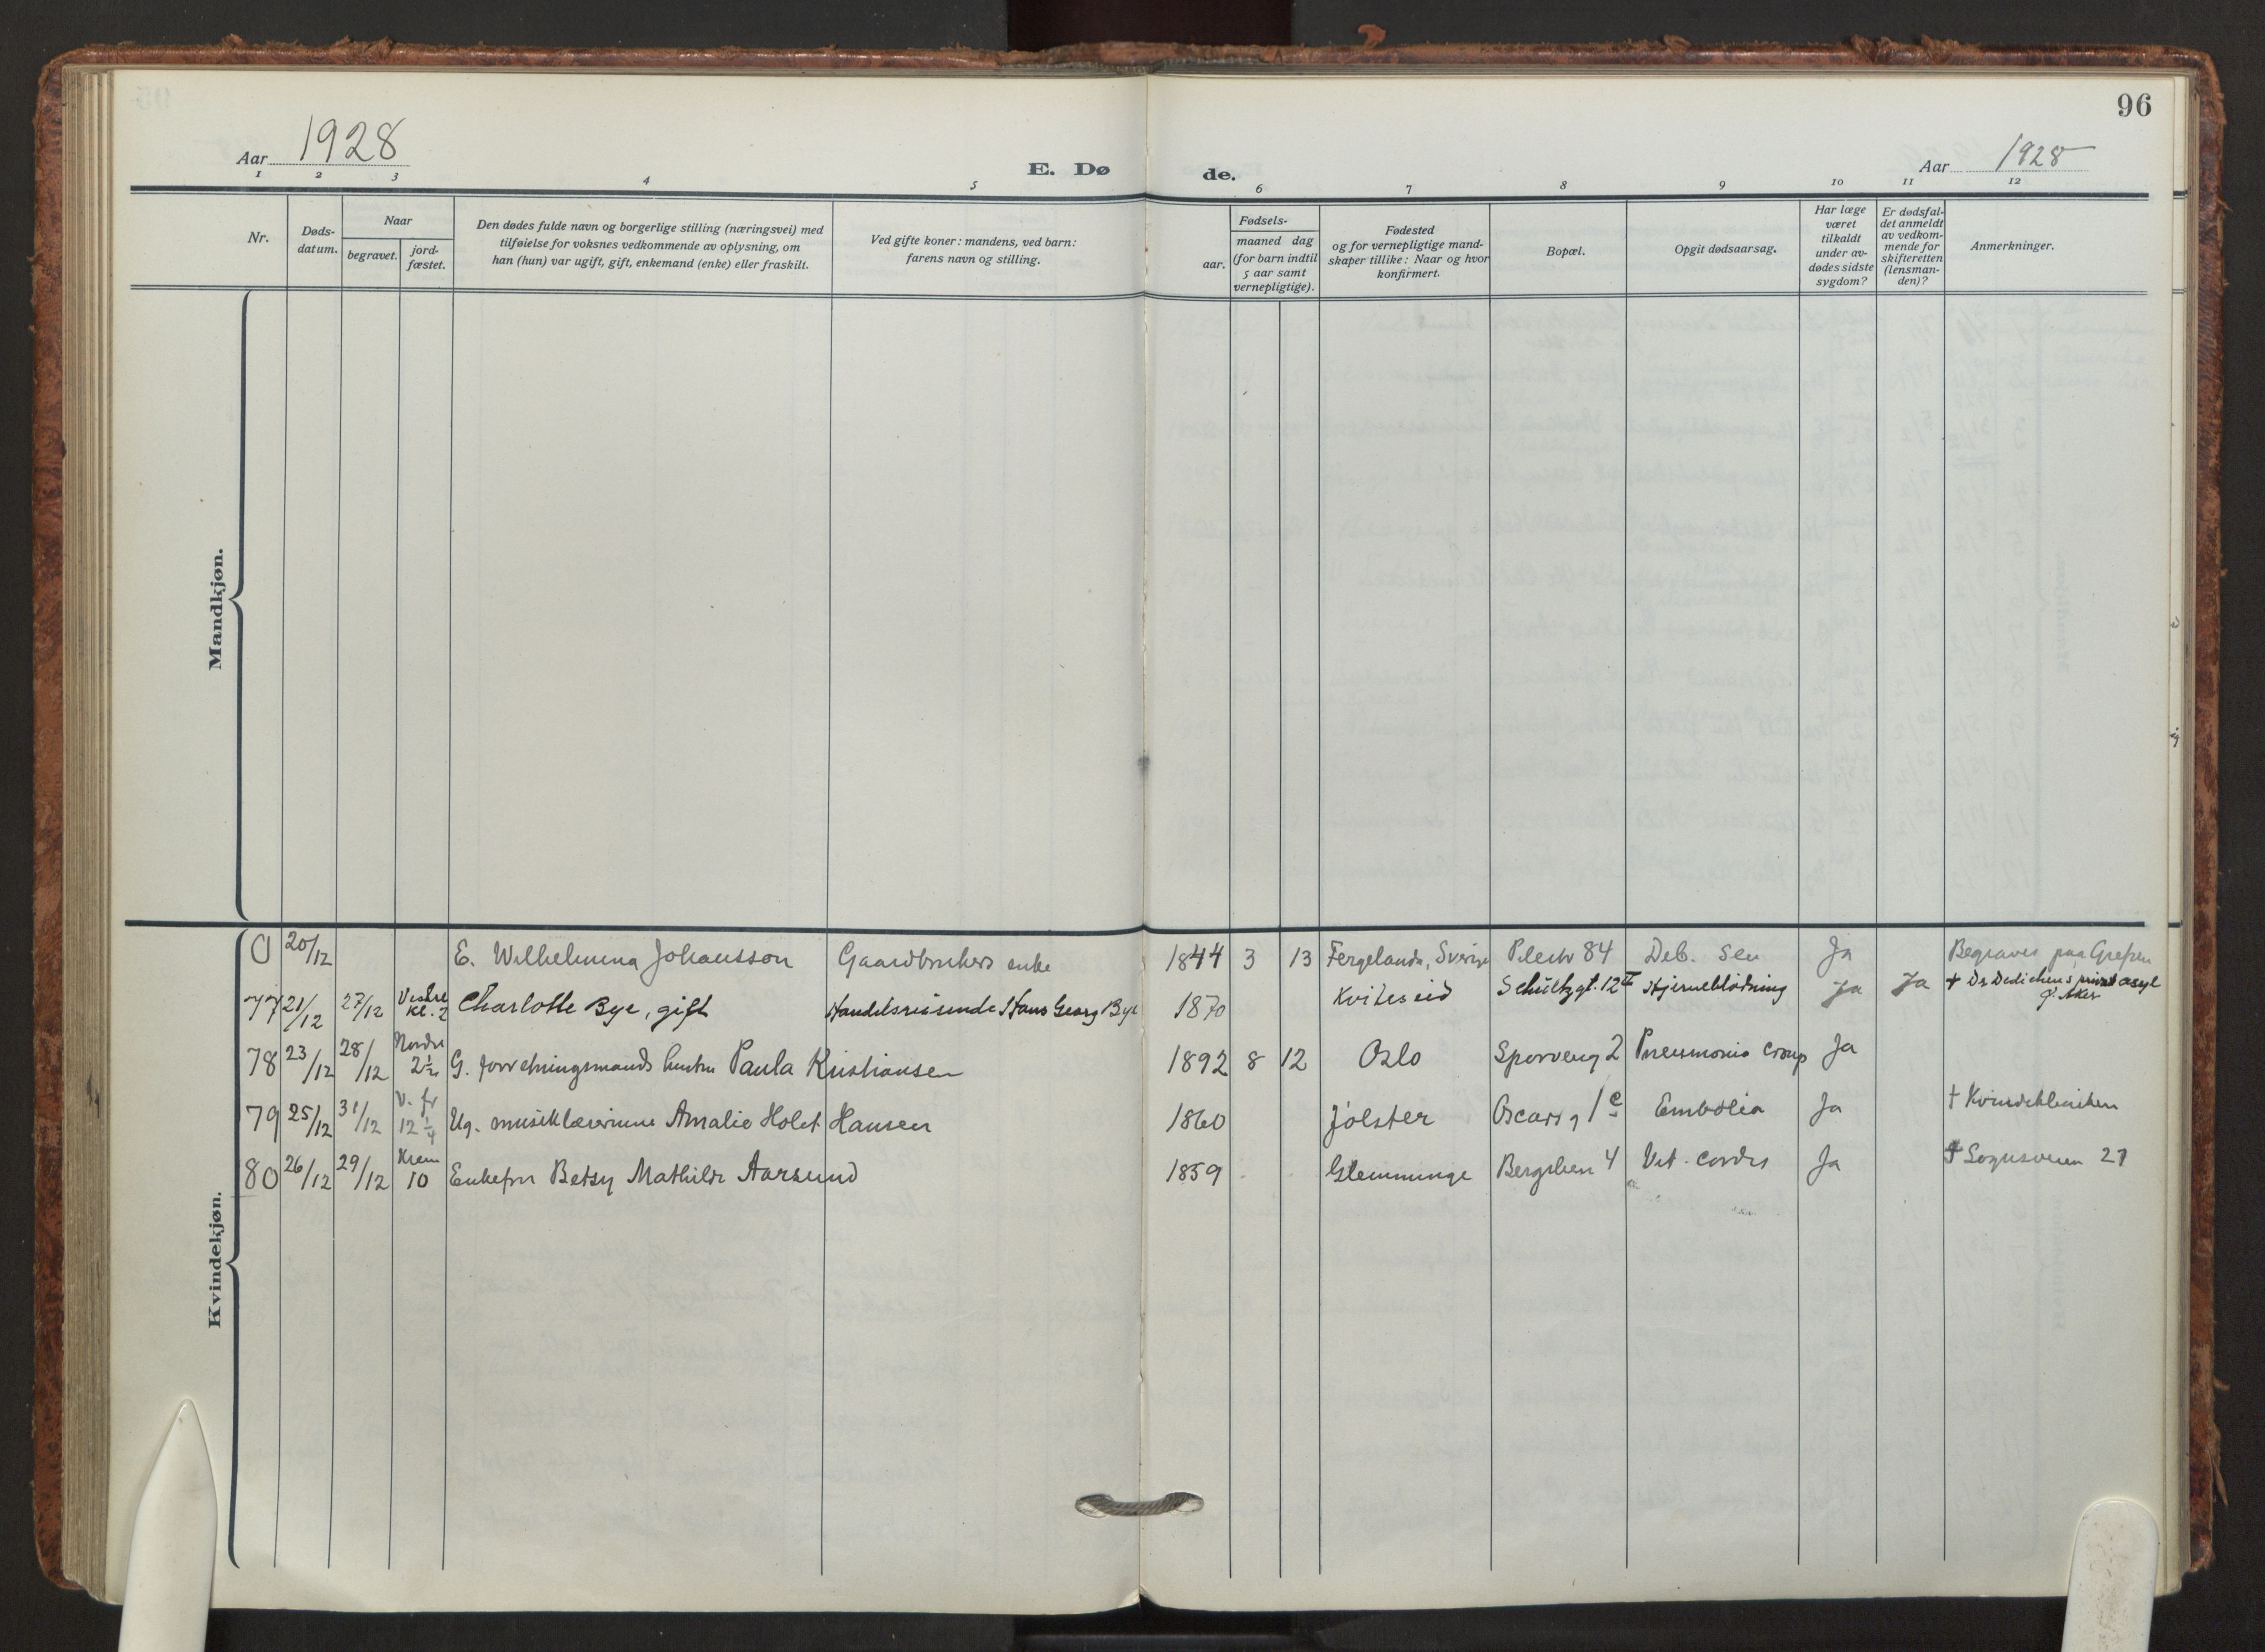 96
Aar 1928
E. Dø de.
Aar 1928
1 2 3 4 5 6 7 8 9 10 11 12
Nr.
Døds-
datum.
Naar
begravet.
jord-
fæstet.
Den dødes fulde navn og borgerlige stilling (næringsvei) med
tilføielse for voksnes vedkommende av oplysning, om
han (hun) var ugift, gift, enkemand (enke) eller fraskilt.
Ved gifte koner: mandens, ved barn:
farens navn og stilling.
Fødsels-
aar.
maaned dag
(for barn indtil
5 aar samt
vernepligtige).
Fødested
og for vernepligtige mand-
skaper tillike: Naar og hvor
konfirmert.
Bopæl.
Opgit dødsaarsag.
Har læge
været
tilkaldt
under av-
dødes sidste
sygdom?
Er dødsfal-
det anmeldt
av vedkom-
mende for
skifteretten
(lensman-
den)?
Anmerkninger.
Mandkjøn.
Kvindekjøn.
0 20/12 E. Wilhelmina Johansson Gaardbrukers enke 1844 3 13 Fergelanda, Sverige Pilestr 84 Deb. sen Ja Begraves paa Grefsen
77 21/12 27/12 Vestre kl. 2 Charlotte Bye, gift Handelsreisende Hans Georg Bye 1870 Kviteseid Schültzgt. 12 II Hjerneblødning Ja Ja † Dr Dedichens privat asyl
Aker
78 23/12 28/12 Nordre 2 1/2 G. forretningsmands hustru Paula Kristiansen 1892 8 12 Oslo Sporveisg 2 Pneumonia croup Ja
79 25/12 31/12 V. fr 12 1/4 Ug. musiklærerinne Amalie Holct Hansen 1860 Jølster Oscarsg 1 c Embolia Ja † Kvindeklinikken
80 26/12 29/12 Krem 10 Enkefru Betsy Mathilde Aarsund 1859 Glemminge Bergslien 4 Vit. cordis Ja † Sognsveien 21